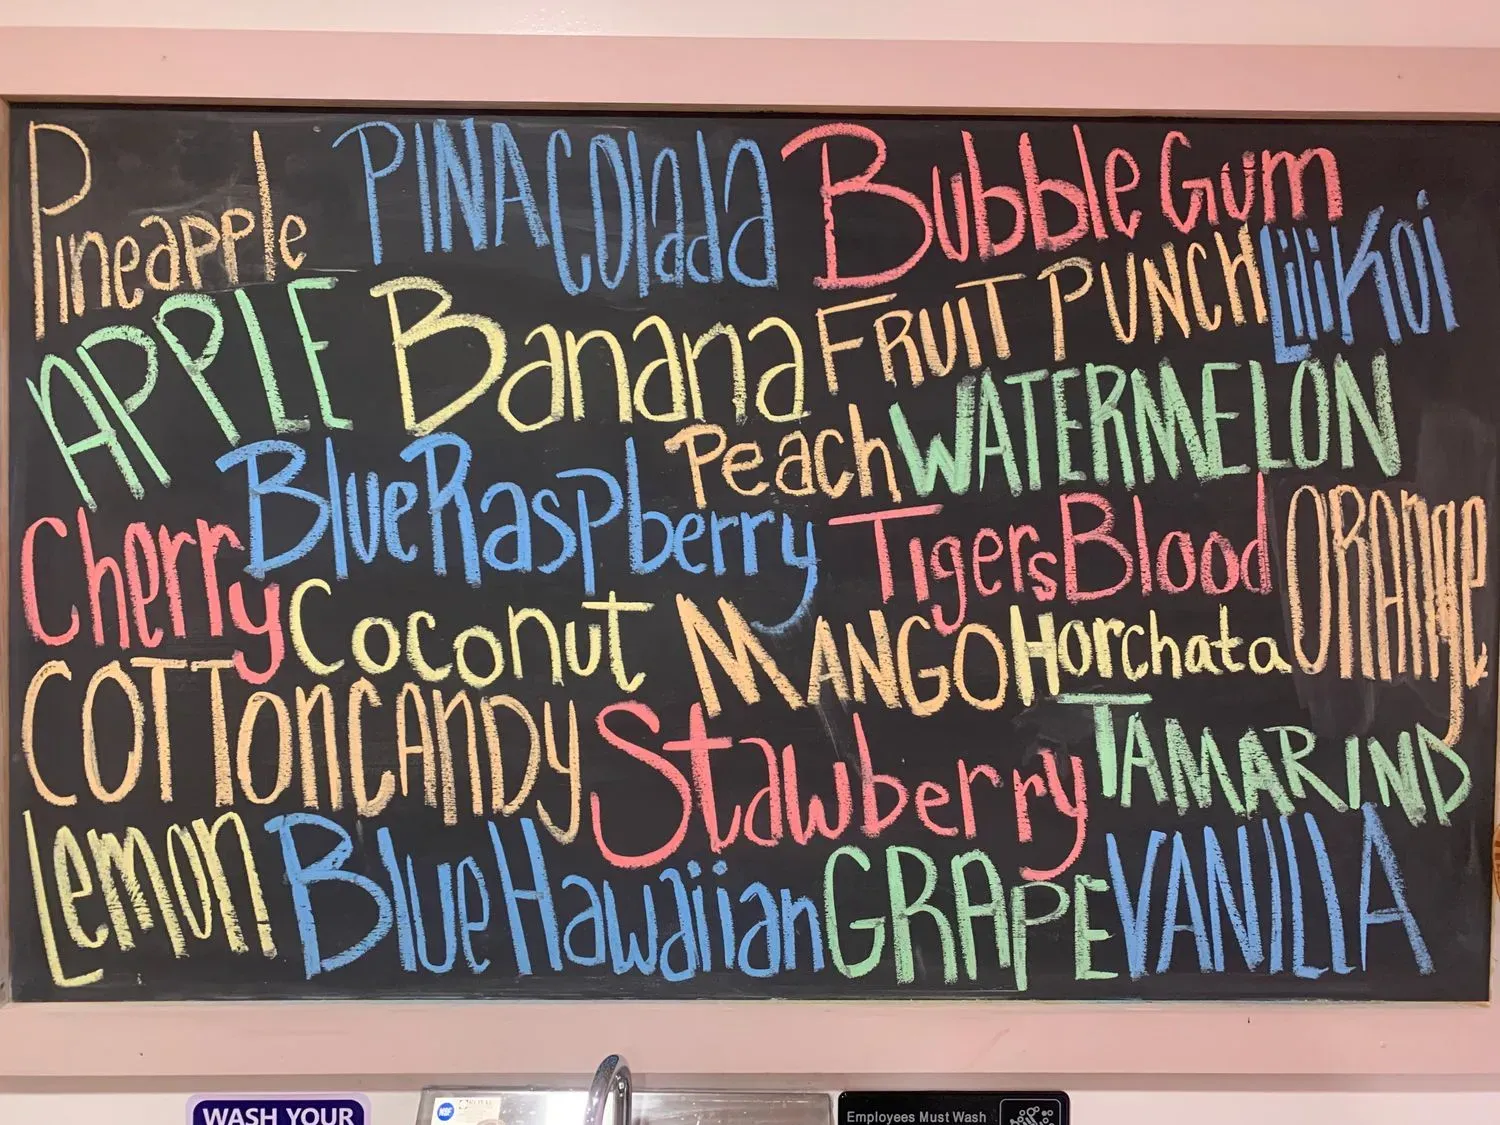 Pineapple PINA COlada Bubble Gum
APPLE Banana FRUIT PUNCH LiliKoi
BlueRaspberry Peach WATERMELON
Cherry Coconut MANGO TigersBlood ORAnge
COTTonCAnDy Stawberry Horchata
TAMARIND
Lemon Blue Hawaiian GRApE VANIllA
WASH YOUR
NSF
Employees Must Wash